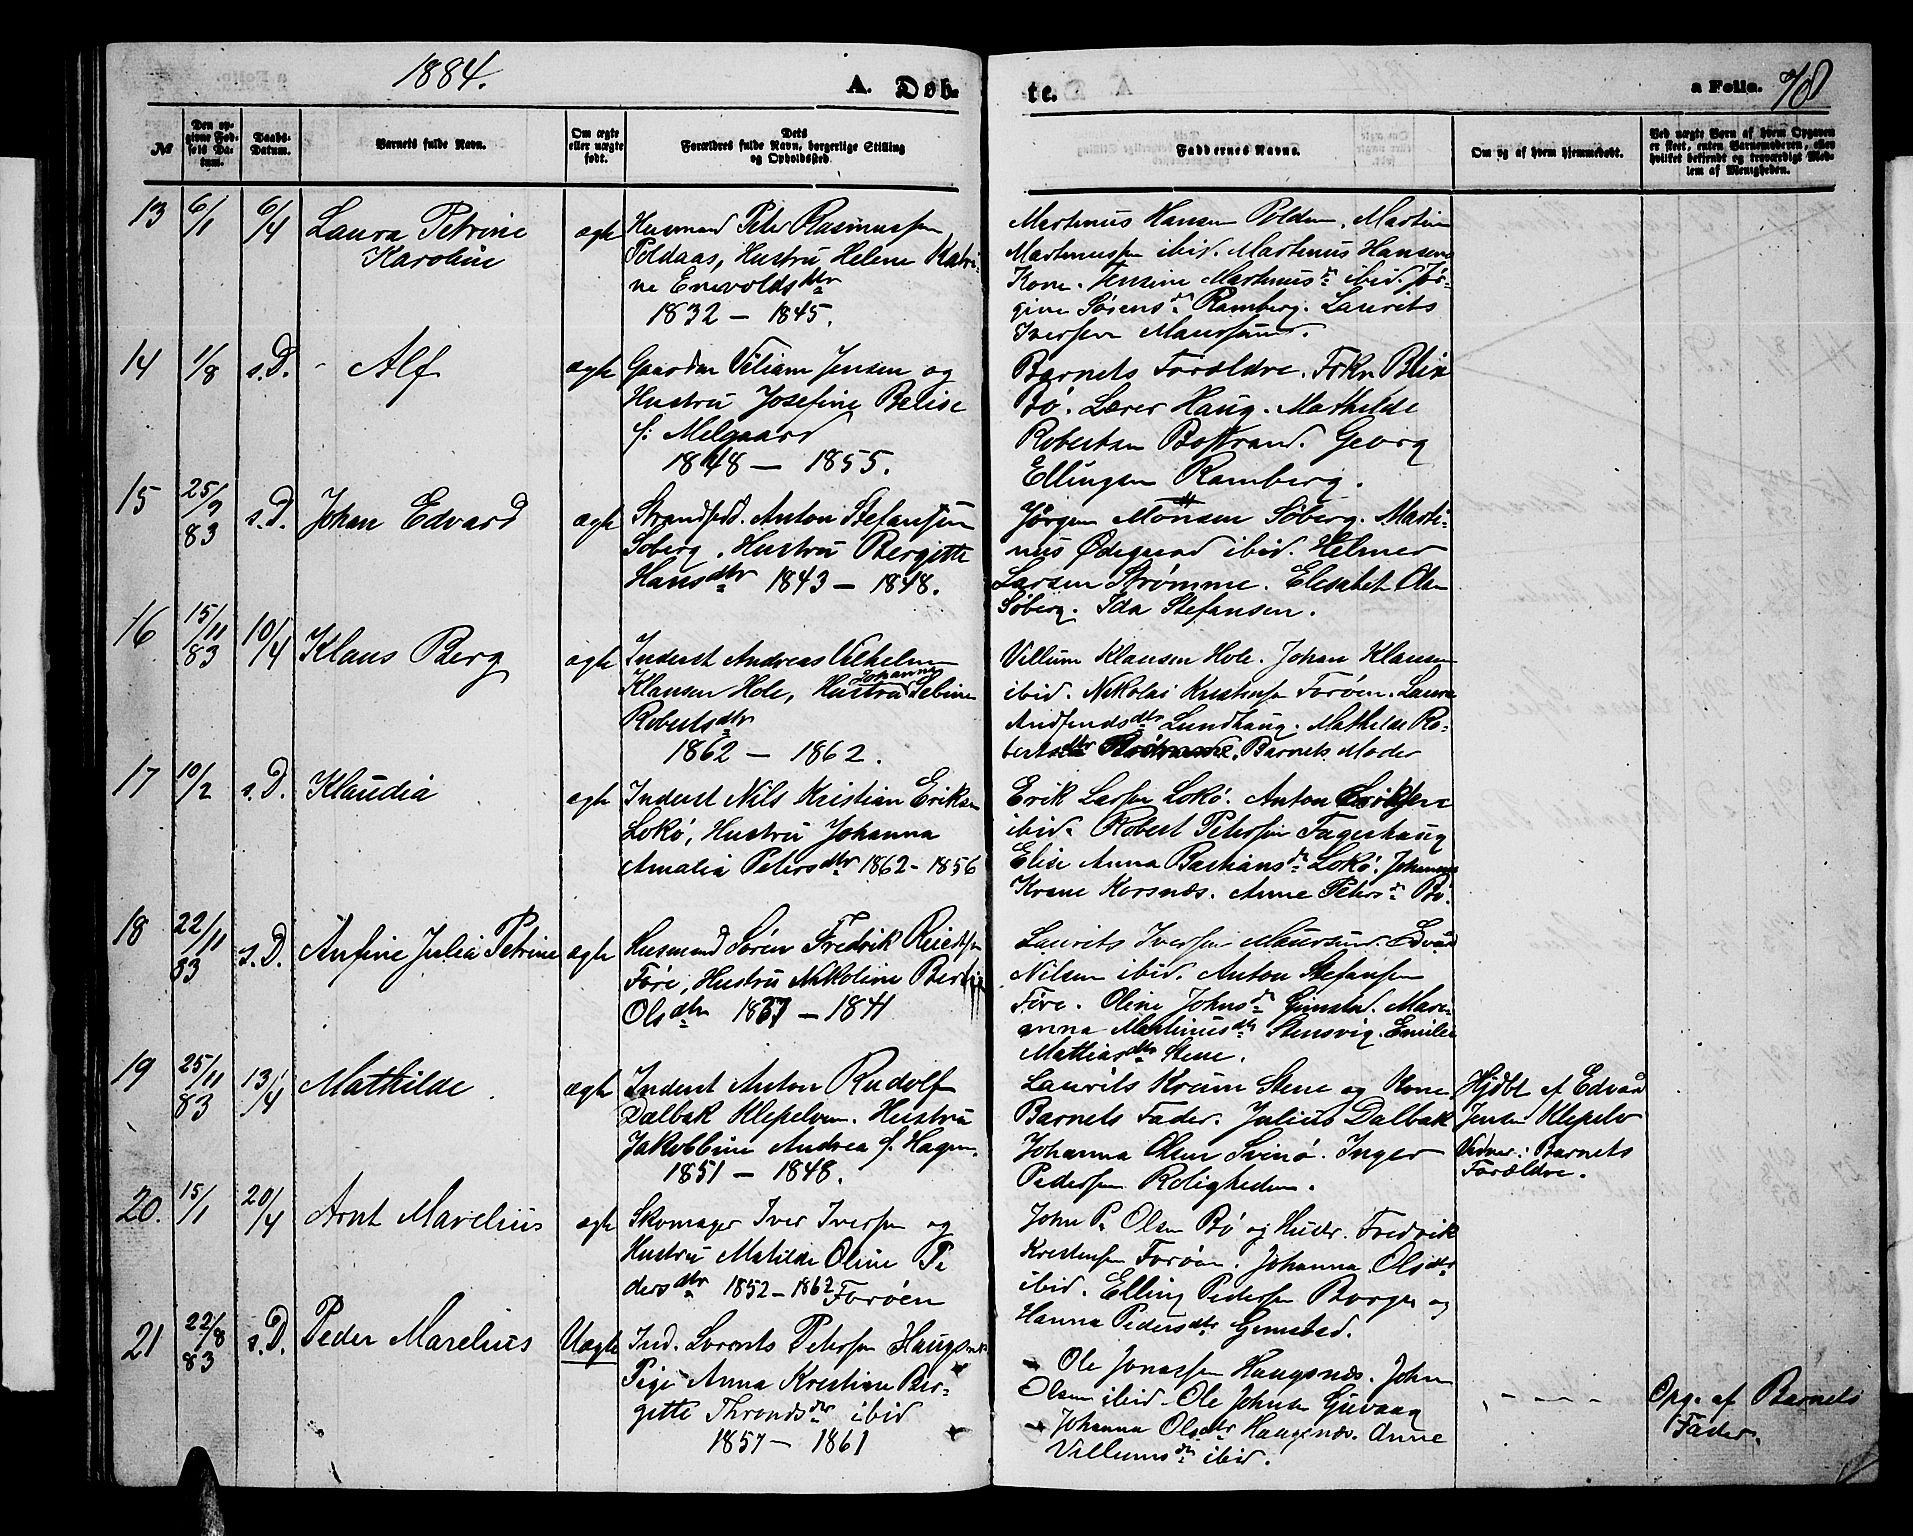 1884.
A. Døb-
te.
a Folio. 78
№
Den op-
givne Fød-
sels Da-
tum.
Daabs-
Datum.
Barnets fulde Navn.
Om ægte
eller uægte
født.
Dets
Forældres fulde Navn, borgerlige Stilling
og Opholdssted.
Faddernes Navne.
Om og af hvem hjemmedøbt.
Ved uægte Børn af hvem Opgaven
er skeet, enten Barnemoderen, eller
hvilket bekjendt og troværdigt Med-
lem af Menigheden.
13 6/1 6/4 Laura Petrine
Karoline
ægte Husmand Peter Rasmussen
Poldaas, Hustru Helene Katri-
ne Enevoldsdtr
1832 - 1845.
Martinus Hansen Polden. Martin
Martinussen ibid. Martinus Hansens
Kone. Jensine Martinusdr ibid. Jør-
gine Sørensdr Ramberg. Laurits
Iversen Maursund.
14 1/8 s.D. Alf
ægte Gaardm Viliam Jensen og
Hustru Josefine Belise
f: Melgaard
1848 - 1855.
Barnets Forældre. Frkn Blix
Bø. Lærer Haug. Mathilde
Robertsen Bøstrand. Georg
Ellingsen Ramberg.
15 25/9 83 s.D. Johan Edvard
ægte Strandsidd. Anton Stefansen
Søberg, Hustru Bergitte
Hansdtr 1843 - 1848.
Jørgen Monsen Søberg. Marti-
nus Ødegaard ibid. Helmer
Larsen Strømme. Elisabet Olsen
Søberg. Ida Stefansen.
16 15/11 83 10/4 Klaus Berg
ægte Inderst Andreas Vilhelm
Klausen Hole, Hustru Johanna Sebine
Robertsdtr
1862 - 1862.
Villum Klausen Hole. Johan Klausen
ibid. Nikolai Kristensen Forøen. Laura
Andfindsdtr Lundhaug. Mathilde Ro-
bertsdtr Barnets Moder
17 10/2 s.D. Klaudia
ægte Inderst Nils Kristian Eriksen
Lokø, Hustru Johanna
Amalia Petersdtr 1862 - 1856
Erik Larsen Lokø. Anton Eriksen
ibid. Robert Petersen Fagerhaug
Elise Anna Bastiansdr Lokø. Johannes
Krane Korsnæs. Anne Petersdr Bø.
18 22/11 83 s.D. Anfine Julia Petrine
ægte Husmand Søren Fredrik
Føre, Hustru Nikoline
Olsdtr 1837 - 1841
Laurits Iversen Maursund. Edvard
Nilsen ibid. Anton Stefansen
Føre. Oline Johnsdr Gimstad. Mari-
anna Martinusdtr Steinsvig. Emilie
Mattiasdtr Stene.
19 25/11 83 13/4 Mathilde
ægte Inderst Anton Rudolf
Dalbak Klepelven. Hustru
Jakobbine Andrea f. Hagen.
1851 - 1848.
Laurits Krum Stene og Kone
Barnets Fader. Julius Dalbak
Johanna Olsen Svinø. Inger
Pedersen Roligheden.
Hjdbt af Edvard
Jensen Klepelv
Vidner: Barnets
Forældre.
20. 15/1 20/4 Arnt Marelius
ægte Skomager Iver Iversen og
Hustru Matilde Oline Pe
dersdtr 1852 - 1862 Forøen
John P. Olsen Bø og Hustr. Fredrik
Kristensen Forøen. Johanna Olsdtr
ibid. Elling Pedersen Borgen og
Hanna Pedersdtr Gimstad.
21 22/8 83 s.D. Peder Marelius
Uægte Ind. Lorents Petersen Haugsnæs
Pige Anna Kristiane Ber-
gitte Throndsdtr ibid
1857 - 1861
Ole Jonassen Haugsnæs. John
Olsen ibid. Ole Johnsen Guvaag
Johanna Olsdtr Haugsnæs. Anne
Villumsdtr ibid.
Opg. af Barnets
Fader.